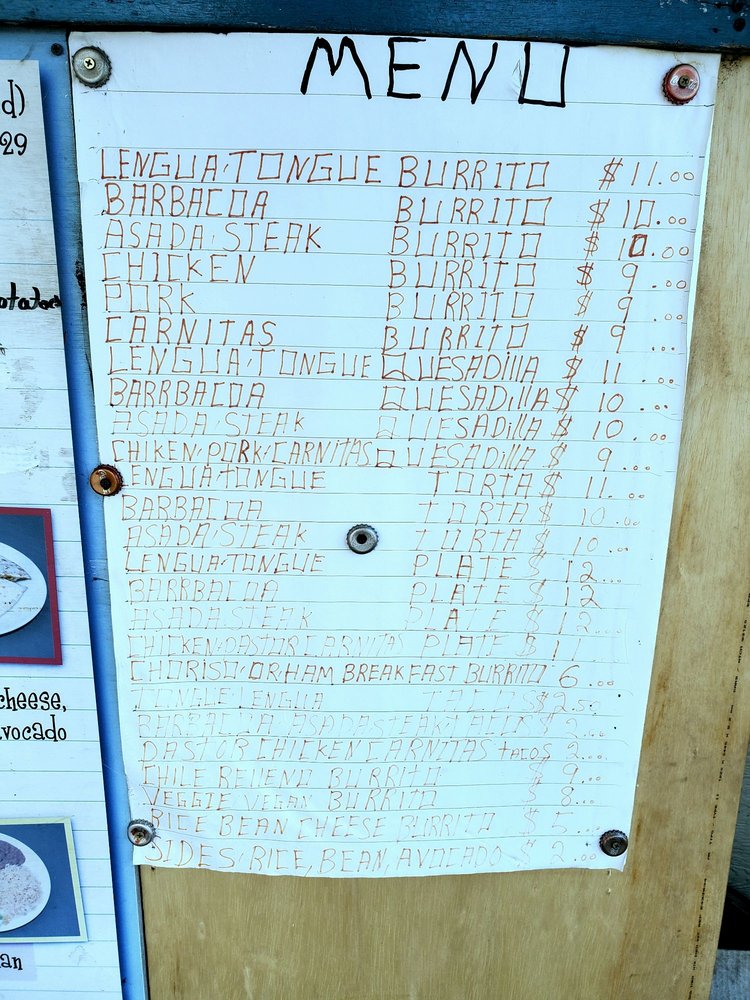 d)
29
otatoe
cheese,
vocado
an
MENU
LENGUA·TONGUE BURRITO $11.00
BARBACOA BURRITO $10.00
ASADA·STEAK BURRITO $10.00
CHICKEN BURRITO $9.00
PORK BURRITO $9.00
CARNITAS BURRITO $9.00
LENGUA·TONGUE QUESADillA $11.00
BARRBACOA QUESADillA $10.00
ASADA·STEAK QUESADillA $10.00
CHIKEN·PORK·CARNITAS QUESADillA $9.00
LENGUA·TONGUE TORTA $11.00
BARBACOA TORTA $10.00
ASADA·STEAK TORTA $10.00
LENGUA·TONGUE PLATE $12.00
BARRBACOA PLATE $12
ASADA·STEAK PLATE $12.00
CHICKEN·PASTOR CARNITAS PLATE $11.00
CHORISO·OR·HAM BREAKFAST BURRITO 6.00
TONGUE·LENGUA TACOS $2.50
BARBACOA ASADA STEAK TACOS $2.00
PASTOR CHICKEN CARNITAS tACOS 2.00
CHILE RELLENO BURRITO $9.00
VEGGIE VEGAN BURRITO $8.00
RICE BEAN CHEESE BURRITO $5.00
SIDES·RICE, BEAN, AVOCADO $2.00